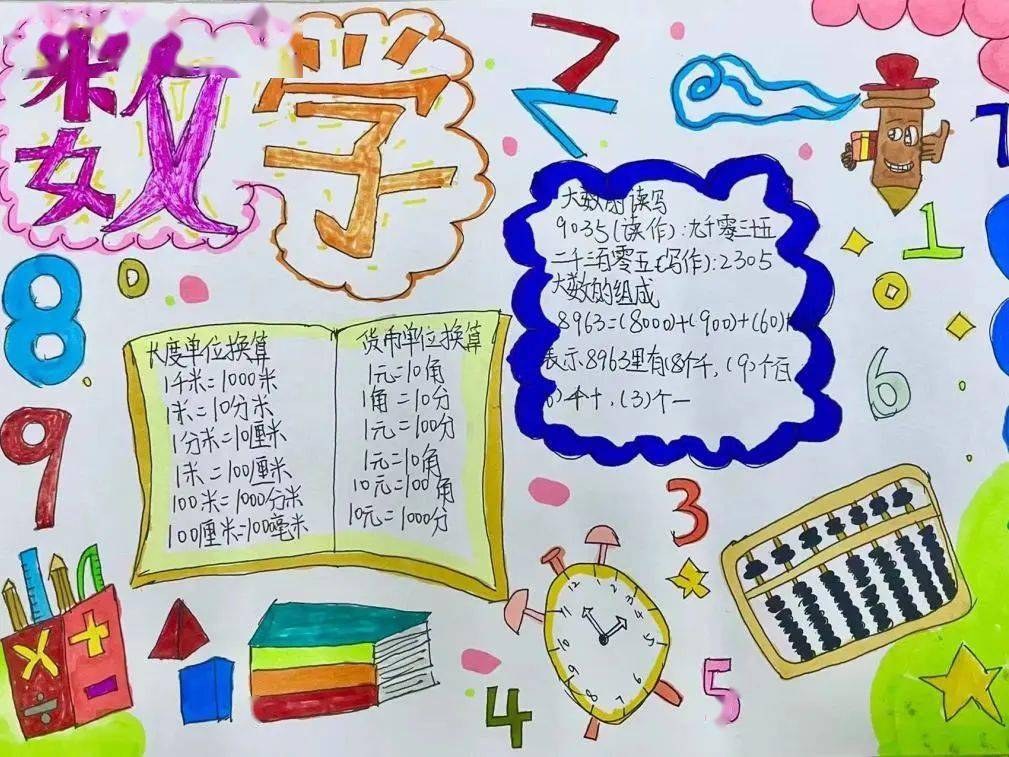 数学
大数的读写
9035(读作):九千零三十五
二千三百零五(写作):2305
大数的组成
8963=(8000)+(900)+(60)+
表示8963里有(8个千,(9)个百
)个十,(3)个一
长度单位换算
1千米=1000米
1米=10分米
1分米=10厘米
1米=100厘米
100米=1000分米
100厘米=1000毫米
货币单位换算
1元=10角
1角=10分
1元=100分
1元=10角
10元=100角
10元=1000分
7
1
8
6
9
3
12
1
2
3
5
6
7
8
9
10
11
×
+
÷
-
4
5